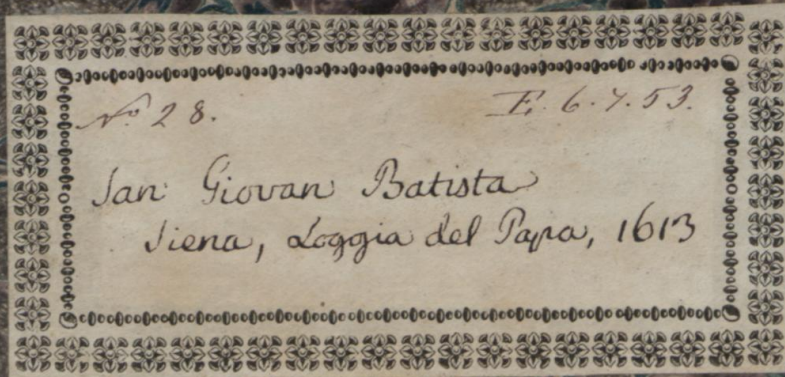 No. 28. E. 6. 7. 53.
San Giovan Batista
Siena, Loggia del Papa, 1613